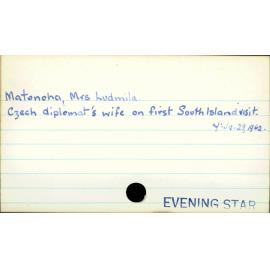 Matonoha, Mrs Ludmila
Czech diplomat's wife on first South Island visit.
EVENING STAR